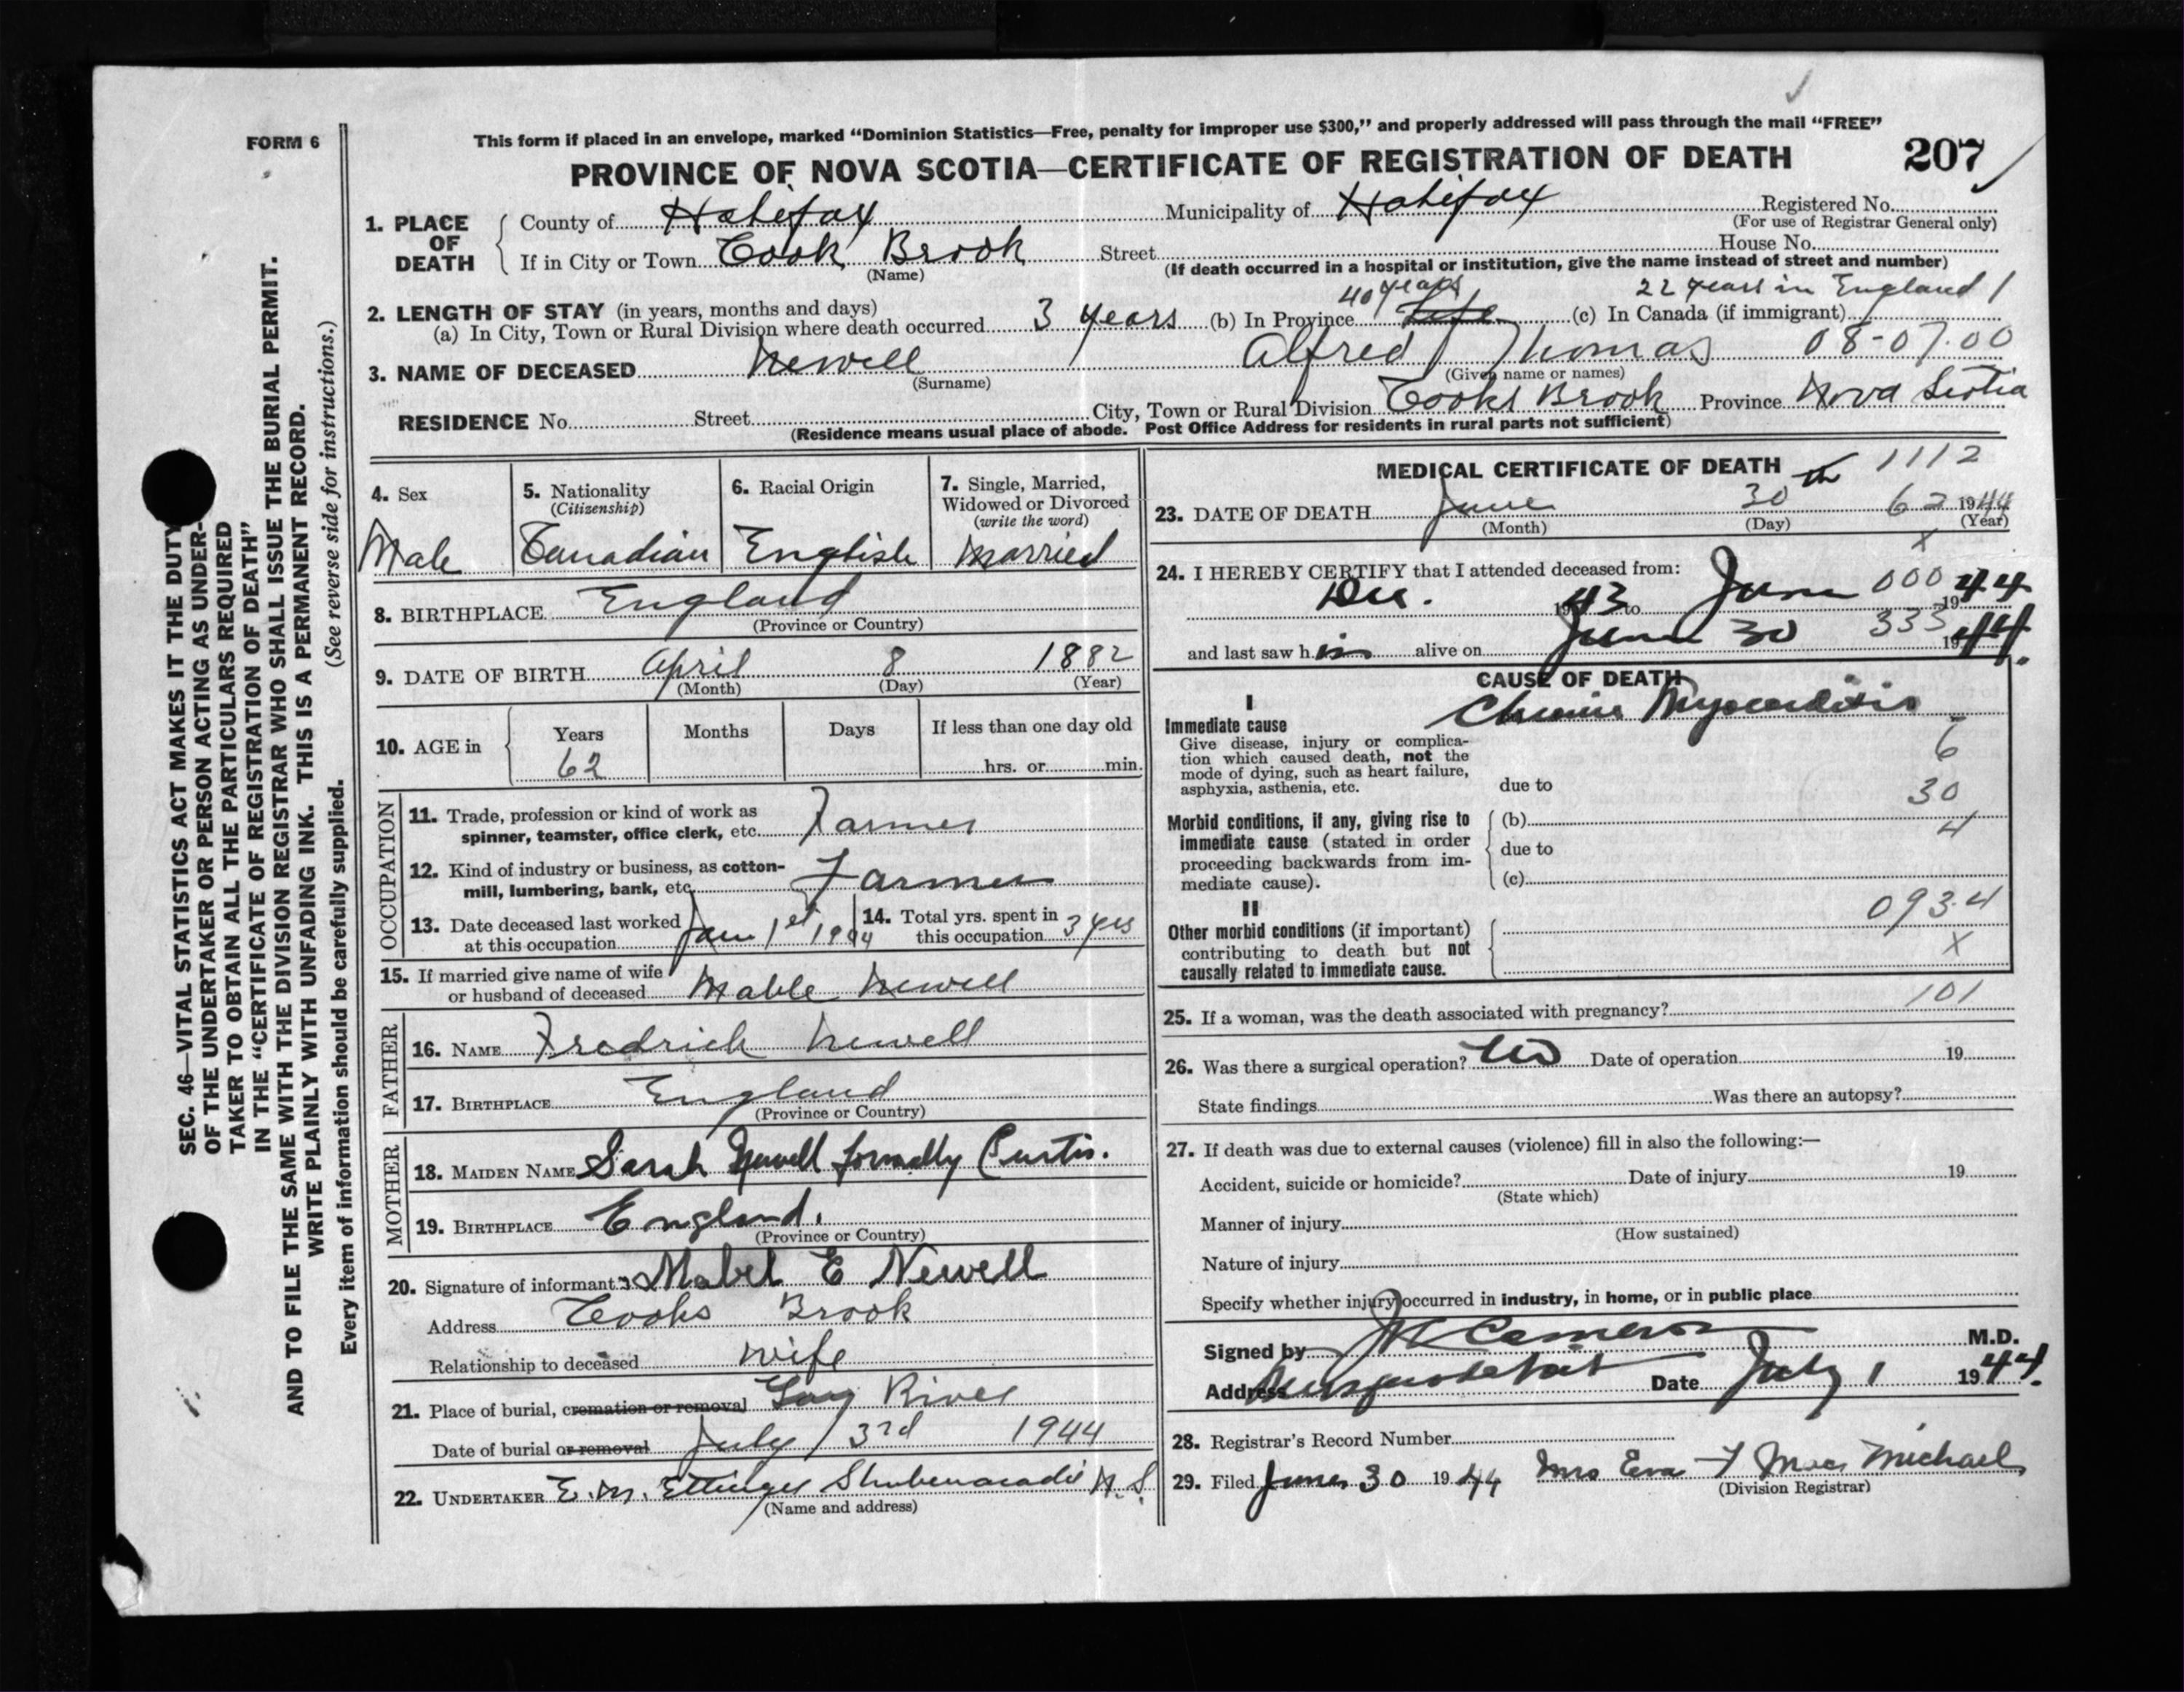 FORM 6
This form if placed in an envelope, marked “Dominion Statistics—Free, penalty for improper use $300,” and properly addressed will pass through the mail “FREE”
PROVINCE OF NOVA SCOTIA—CERTIFICATE OF REGISTRATION OF DEATH 207
SEC. 46—VITAL STATISTICS ACT MAKES IT THE DUTY
OF THE UNDERTAKER OR PERSON ACTING AS UNDER-
TAKER TO OBTAIN ALL THE PARTICULARS REQUIRED
IN THE “CERTIFICATE OF REGISTRATION OF DEATH”
AND TO FILE THE SAME WITH THE DIVISION REGISTRAR WHO SHALL ISSUE THE BURIAL PERMIT.
WRITE PLAINLY WITH UNFADING INK. THIS IS A PERMANENT RECORD.
Every item of information should be carefully supplied. (See reverse side for instructions.)
1. PLACE OF DEATH
County of Halifax Municipality of Halifax Registered No.
(For use of Registrar General only)
If in City or Town Cook Brook Street House No.
(Name) (If death occurred in a hospital or institution, give the name instead of street and number)
2. LENGTH OF STAY (in years, months and days) 40 years 22 years in England
(a) In City, Town or Rural Division where death occurred 3 years (b) In Province Life (c) In Canada (if immigrant)
3. NAME OF DECEASED Newell Alfred Thomas 08-07.00
(Surname) (Given name or names)
RESIDENCE No. Street City, Town or Rural Division Cooks Brook Province Nova Scotia
(Residence means usual place of abode. Post Office Address for residents in rural parts not sufficient)
4. Sex
Male
5. Nationality
(Citizenship)
Canadian
6. Racial Origin
English
7. Single, Married,
Widowed or Divorced
(write the word)
Married
8. BIRTHPLACE England
(Province or Country)
9. DATE OF BIRTH April 8 1882
(Month) (Day) (Year)
10. AGE in Years Months Days If less than one day old
62 hrs. or min.
OCCUPATION
11. Trade, profession or kind of work as
spinner, teamster, office clerk, etc. Farmer
12. Kind of industry or business, as cotton-
mill, lumbering, bank, etc. Farmer
13. Date deceased last worked
at this occupation Jan 1st 1944
14. Total yrs. spent in
this occupation 3 yrs
15. If married give name of wife
or husband of deceased Mable Newell
FATHER
16. NAME Fredrick Newell
17. BIRTHPLACE England
(Province or Country)
MOTHER
18. MAIDEN NAME Sarah Newell formelly Curtis.
19. BIRTHPLACE England.
(Province or Country)
20. Signature of informant Mabel E Newell
Address Cooks Brook
Relationship to deceased wife
21. Place of burial, cremation or removal Gay River
Date of burial or removal July 3rd 1944
22. UNDERTAKER E. M. Ettinger Shubenacadie N.S.
(Name and address)
MEDICAL CERTIFICATE OF DEATH 1112
23. DATE OF DEATH June 30th 62 1944
(Month) (Day) (Year)
x
24. I HEREBY CERTIFY that I attended deceased from:
Dec. 1943 to June 000 1944
and last saw h im alive on June 30 333 1944.
CAUSE OF DEATH
I
Immediate cause Chronic Myocarditis
Give disease, injury or complica-
tion which caused death, not the
mode of dying, such as heart failure,
asphyxia, asthenia, etc.
6
due to
30
Morbid conditions, if any, giving rise to
immediate cause (stated in order
proceeding backwards from im-
mediate cause).
(b)
4
due to
(c)
II
093.4
Other morbid conditions (if important)
contributing to death but not
causally related to immediate cause.
X
101
25. If a woman, was the death associated with pregnancy?
26. Was there a surgical operation? No Date of operation 19
State findings Was there an autopsy?
27. If death was due to external causes (violence) fill in also the following:—
Accident, suicide or homicide? Date of injury 19
(State which)
Manner of injury
(How sustained)
Nature of injury
Specify whether injury occurred in industry, in home, or in public place
Signed by Cameron M.D.
Address Musquodoboit Date July 1 1944.
28. Registrar's Record Number
29. Filed June 30 1944 Mrs Eva F MacMichael
(Division Registrar)